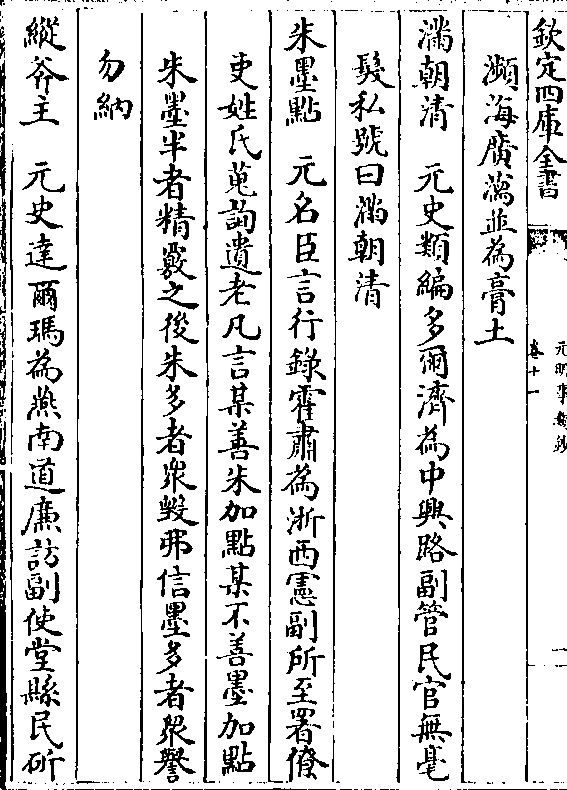 欽定四庫全書
元明事類鈔
卷十一
瀕海廣㵼並為膏土
滿朝清　元史類編多爾濟為中興路副管民官無毫
髮私號曰滿朝清
朱墨點　元名臣言行錄霍肅為浙西憲副所至署僚
吏姓氏蒐詢遺老凡言某善朱加點某不善墨加點
朱墨半者精覈之後朱多者衆毀弗信墨多者衆譽
勿納
縱斧主　元史達爾瑪為燕南道廉訪副使堂縣民斫